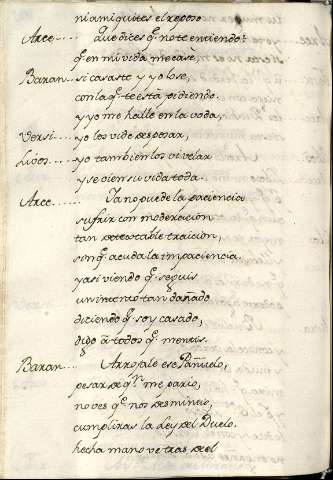 ni a mi quites el reposo
Arce.... Que dites q̃ no te entiendo?
q̃ en mi vida me casè.
Baran.. si casaste y yo lo se,
con la q̃ te està pidiendo.
y yo me hallè en la voda,
Versi.... yo los vide desposar,
Livos.... yo tambien los vi velar
y se vien su vida toda.
Arce.... Ya no puede la paciencia
sufrir con moderacion
tan detestable traicion,
son q̃ acuda la impaciencia.
y asi viendo q̃ seguis
un intento tan dañado
diciendo q̃ soy casado,
digo à todos q̃ mentis.
Baran.... Arrojale ese Pañuelo,
pesar de qn me pario,
no ves q̃ nos desmintio,
cumpliras la Ley del Duelo.
hecha mano ve tras del